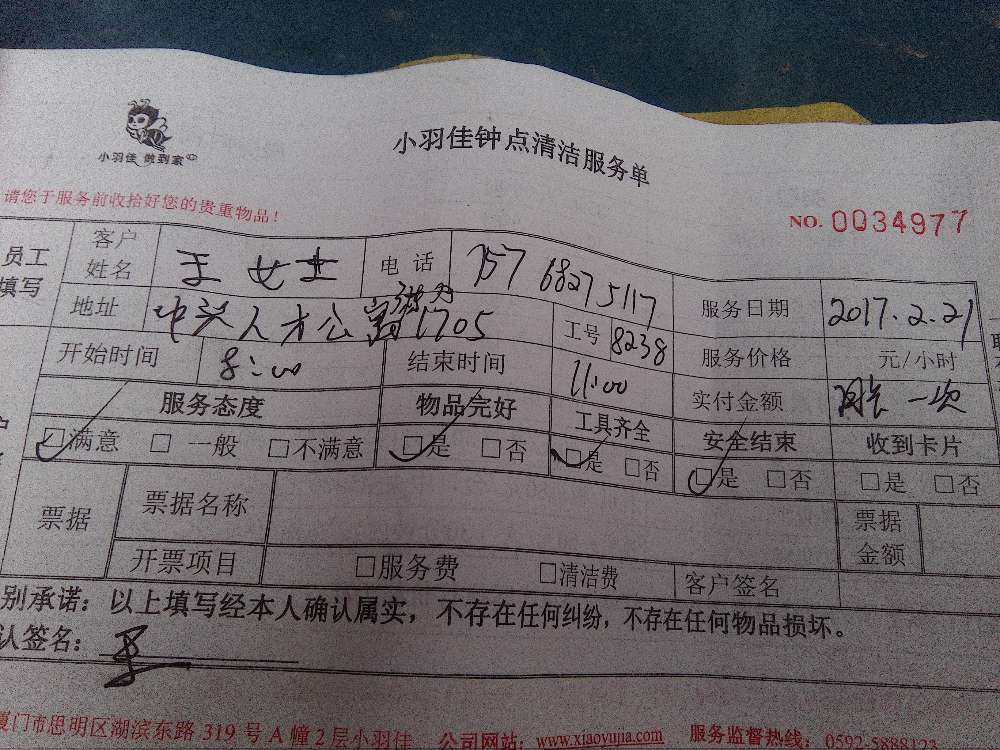 小羽佳 做到家
小羽佳钟点清洁服务单
请您于服务前收拾好您的贵重物品！
NO. 0034977
员工填写
客户姓名 王女士 电话 157 6827 5117 服务日期 2017.2.21
地址 中兴人才公寓 1705 工号 8238 服务价格 元/小时
开始时间 8:00 结束时间 11:00 实付金额 一次
服务态度 物品完好 工具齐全 安全结束 收到卡片
□满意 □一般 □不满意 □是 □否 □是 □否 □是 □否 □是 □否
票据 票据名称 票据金额
开票项目 □服务费 □清洁费 客户签名
别承诺：以上填写经本人确认属实，不存在任何纠纷，不存在任何物品损坏。
认签名： 王
厦门市思明区湖滨东路 319 号 A 幢 2 层小羽佳 公司网站：www.xiaoyujia.com 服务监督热线：0592-5888123